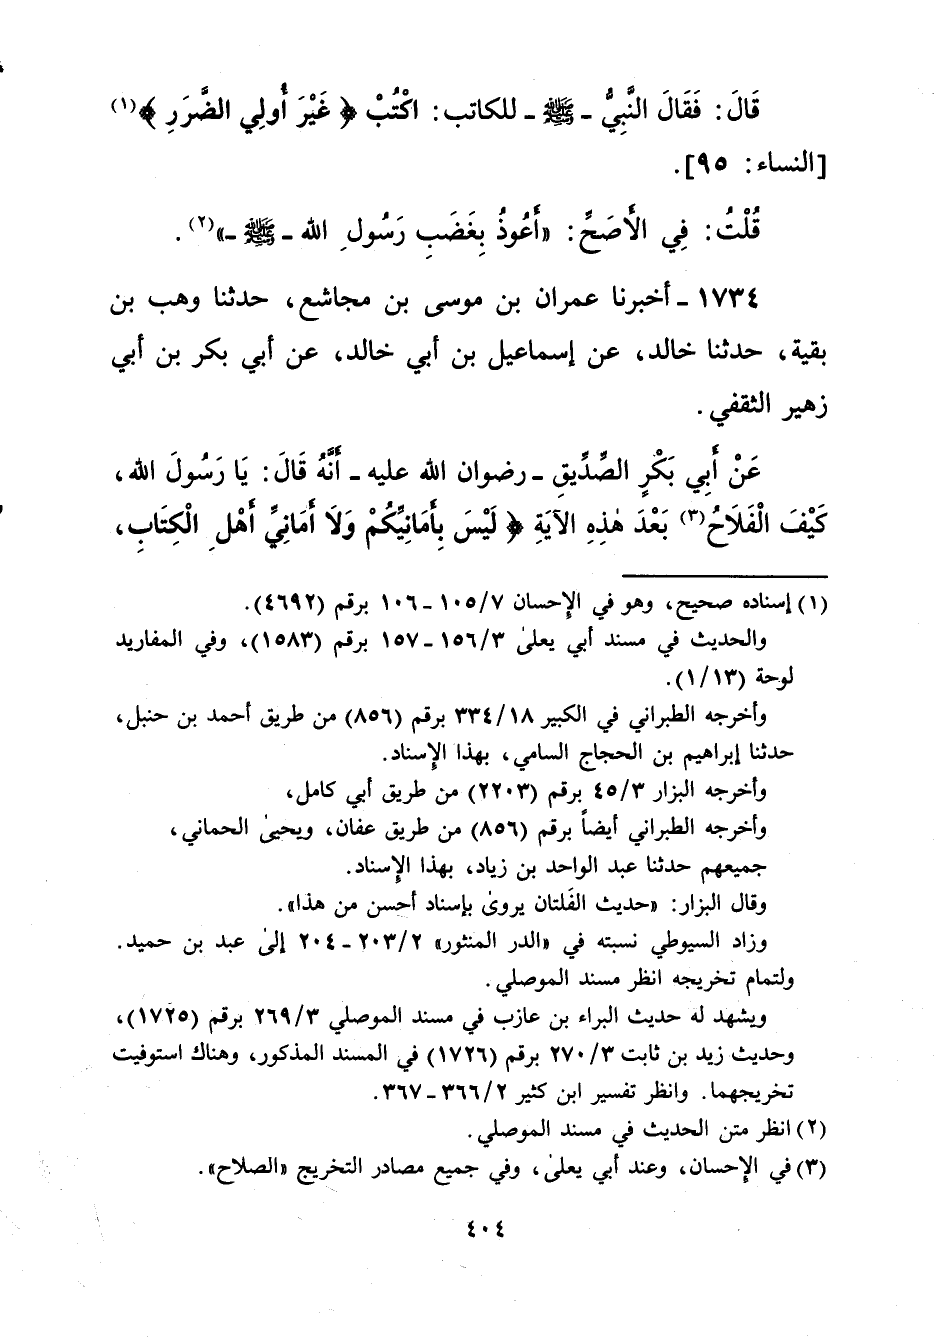 قَالَ: فَقَالَ النَّبِيُّ ـ ﷺ ـ للكاتب: اكْتُبْ ﴿ غَيْرَ أُولِي الضَّرَرِ ﴾(١)
[النساء: ٩٥].
قُلْتُ: فِي الأَصَحِّ: «أَعُوذُ بِغَضَبِ رَسُولِ الله ـ ﷺ ـ»(٢).
١٧٣٤ ـ أخبرنا عمران بن موسى بن مجاشع، حدثنا وهب بن
بقية، حدثنا خالد، عن إسماعيل بن أبي خالد، عن أبي بكر بن أبي
زهير الثقفي.
عَنْ أَبِي بَكْرٍ الصِّدِّيقِ ـ رضوان الله عليه ـ أَنَّهُ قَالَ: يَا رَسُولَ الله،
كَيْفَ الْفَلَاحُ(٣) بَعْدَ هٰذِهِ الآيَةِ ﴿ لَيْسَ بِأَمَانِيِّكُمْ وَلَا أَمَانِيِّ أَهْلِ الْكِتَابِ،
(١) إسناده صحيح، وهو في الإحسان ١٠٥/٧ ـ ١٠٦ برقم (٤٦٩٢).
والحديث في مسند أبي يعلىٰ ١٥٦/٣ ـ ١٥٧ برقم (١٥٨٣)، وفي المفاريد
لوحة (١/١٣).
وأخرجه الطبراني في الكبير ٣٣٤/١٨ برقم (٨٥٦) من طريق أحمد بن حنبل،
حدثنا إبراهيم بن الحجاج السامي، بهذا الإسناد.
وأخرجه البزار ٤٥/٣ برقم (٢٢٠٣) من طريق أبي كامل،
وأخرجه الطبراني أيضاً برقم (٨٥٦) من طريق عفان، ويحيىٰ الحماني،
جميعهم حدثنا عبد الواحد بن زياد، بهذا الإسناد.
وقال البزار: «حديث الفَلتان يروىٰ بإسناد أحسن من هذا».
وزاد السيوطي نسبته في «الدر المنثور» ٢٠٣/٢ ـ ٢٠٤ إلىٰ عبد بن حميد.
ولتمام تخريجه انظر مسند الموصلي.
ويشهد له حديث البراء بن عازب في مسند الموصلي ٢٦٩/٣ برقم (١٧٢٥)،
وحديث زيد بن ثابت ٢٧٠/٣ برقم (١٧٢٦) في المسند المذكور، وهناك استوفيت
تخريجهما. وانظر تفسير ابن كثير ٣٦٦/٢ ـ ٣٦٧.
(٢) انظر متن الحديث في مسند الموصلي.
(٣) في الإحسان، وعند أبي يعلىٰ، وفي جميع مصادر التخريج «الصلاح».
٤٠٤